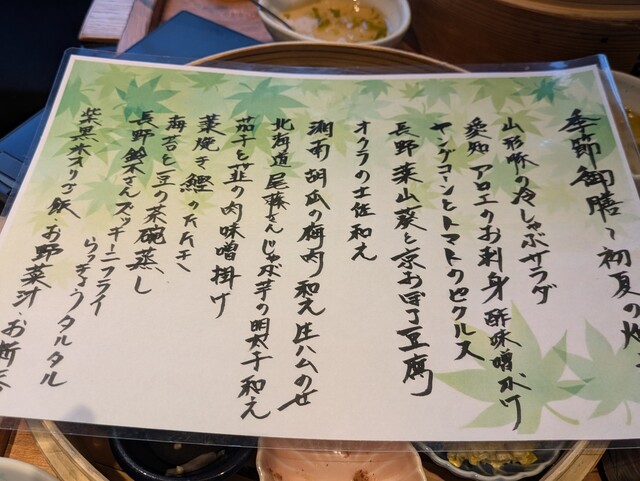 季節御膳〜初夏の
山形豚の冷しゃぶサラダ
愛知 アロエのお刺身 酢味噌がけ
ヤングコンとトマトのピクルス
長野葉山葵と京おぼろ豆腐
オクラの土佐和え
湘南胡瓜の梅肉和え 生ハムのせ
北海道尾藤さんじゃが芋の明太子和え
茄子と韮の肉味噌掛け
藁焼き鰹のたたき
海苔と豆の茶碗蒸し
長野鈴木さんズッキーニフライ
らっきょうタルタル
紫黒米入りご飯・お野菜汁・お新